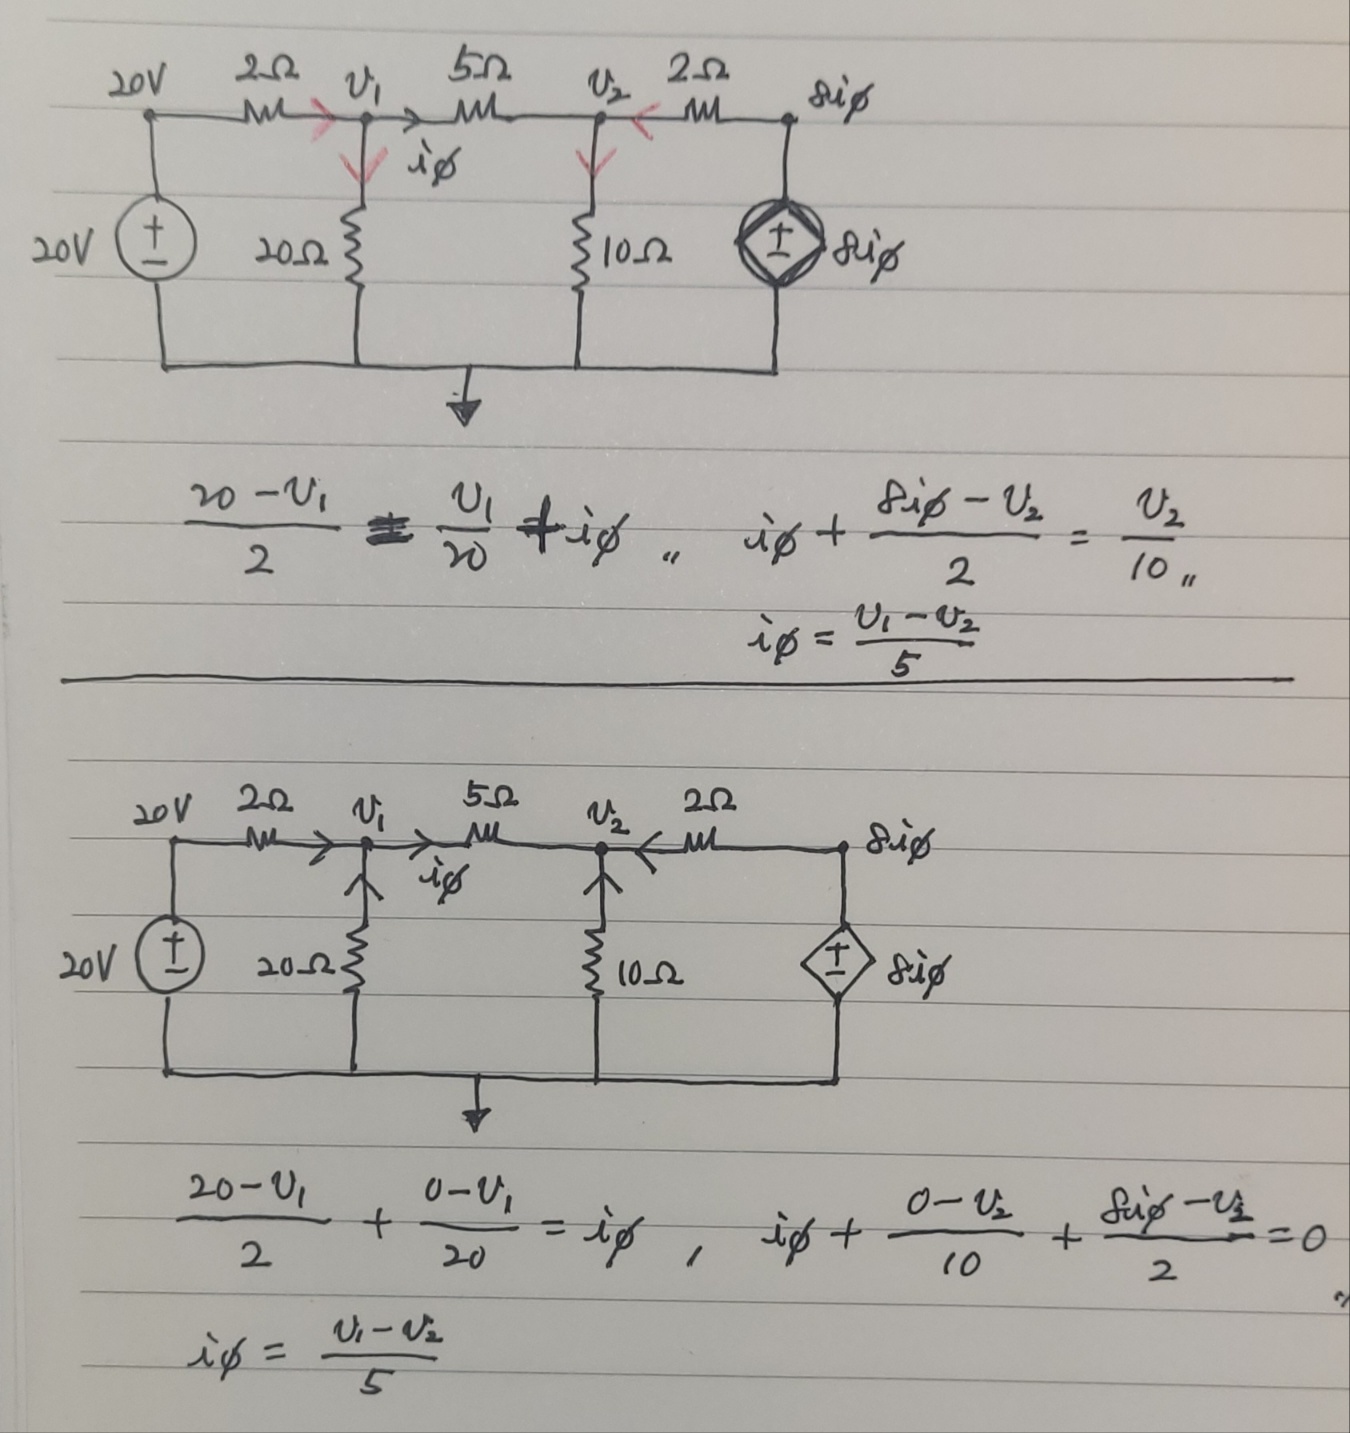 20V 2Ω v₁ 5Ω v₂ 2Ω 8iϕ
iϕ
20V + − 20Ω 10Ω + − 8iϕ
(20 − v₁)/2 = v₁/20 + iϕ 〃 iϕ + (8iϕ − v₂)/2 = v₂/10 〃
iϕ = (v₁ − v₂)/5
20V 2Ω v₁ 5Ω v₂ 2Ω 8iϕ
iϕ
20V + − 20Ω 10Ω + − 8iϕ
(20 − v₁)/2 + (0 − v₁)/20 = iϕ , iϕ + (0 − v₂)/10 + (8iϕ − v₂)/2 = 0 〃
iϕ = (v₁ − v₂)/5